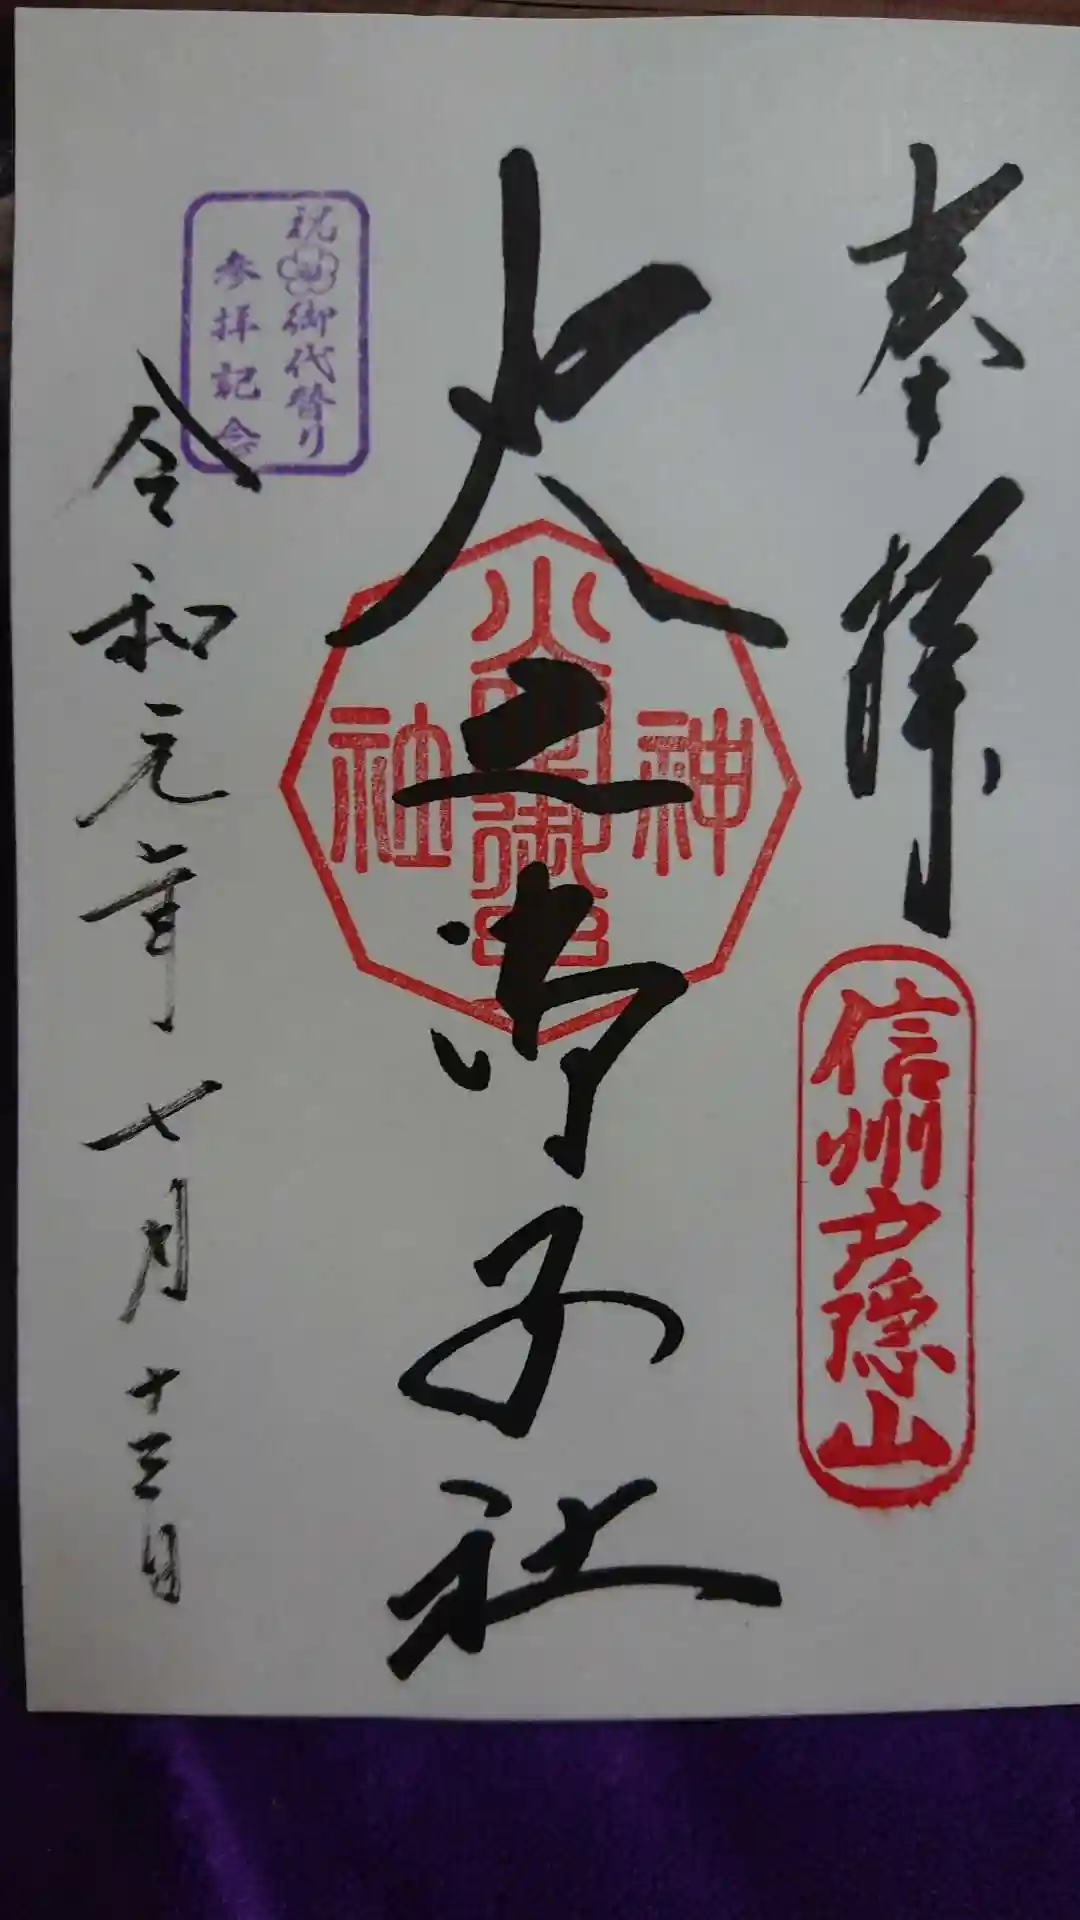 奉拝
信州戸隠山
火之御子社
神
社
祝御代替り
参拝記念
令和元年七月十三日